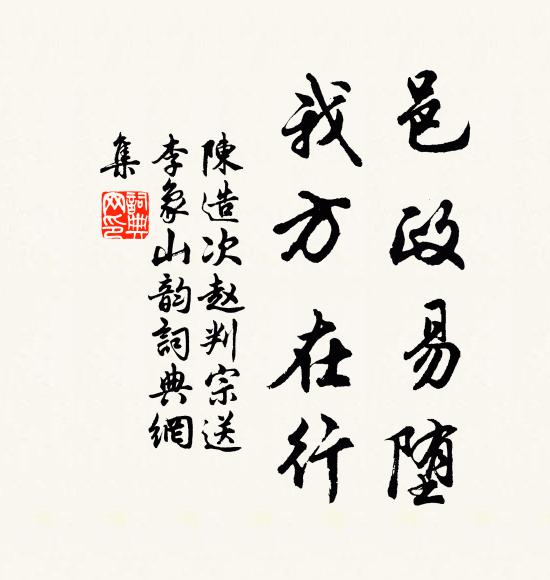 邑政易堕
我方在行
陳造次趙判宗送
李象山韵詞典網
集
詞典网印